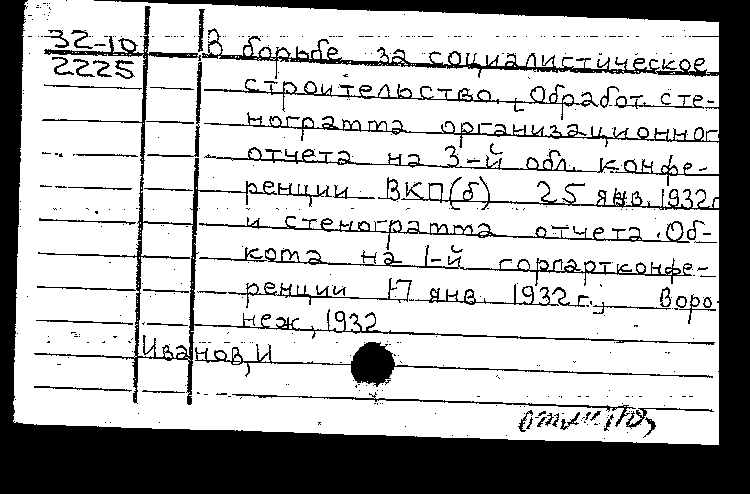 32-10
2225
В борьбе за социалистическое
строительство. [Обработ. сте-
нограмма организационного
отчета на 3-й обл. конфе-
ренции ВКП(б) 25 янв. 1932г
и стенограмма отчета Об-
кома на 1-й горпартконфе-
ренции 17 янв. 1932г.; Воро-
неж, 1932
Иванов, И